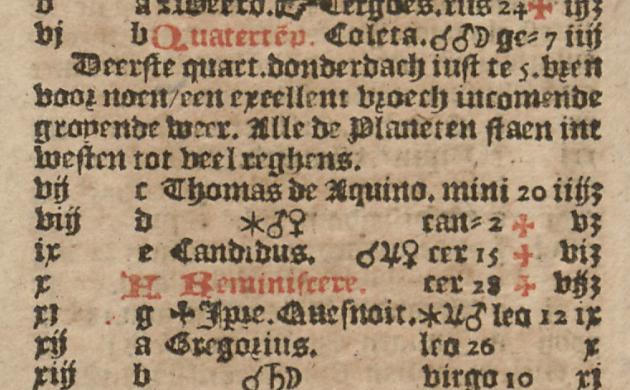 vj b Quatertēp. Coleta. ☌♂☽ ge= 7 iiij
Deerste quart. donderdach iust te 5. vren
voor noen/een excellent vroech incomende
groyende weer. Alle de Planeten staen int
westen tot veel reghens.
vij c Thomas de Aquino. mini 20 iiijꝫ
viij d ⚹♂♀ can= 2 ✚ vꝫ
ix e Candidus. ☌♃♀ cer 15 ✚ vijꝫ
x H Reminiscere. cer 28 ✚ viijꝫ
xj g ✚ Ipre. Quesnoit. ⚹♃♂ leo 12 ix
xij a Gregorius. leo 26 x
xiij b ☌♄☽ virgo 10 xj